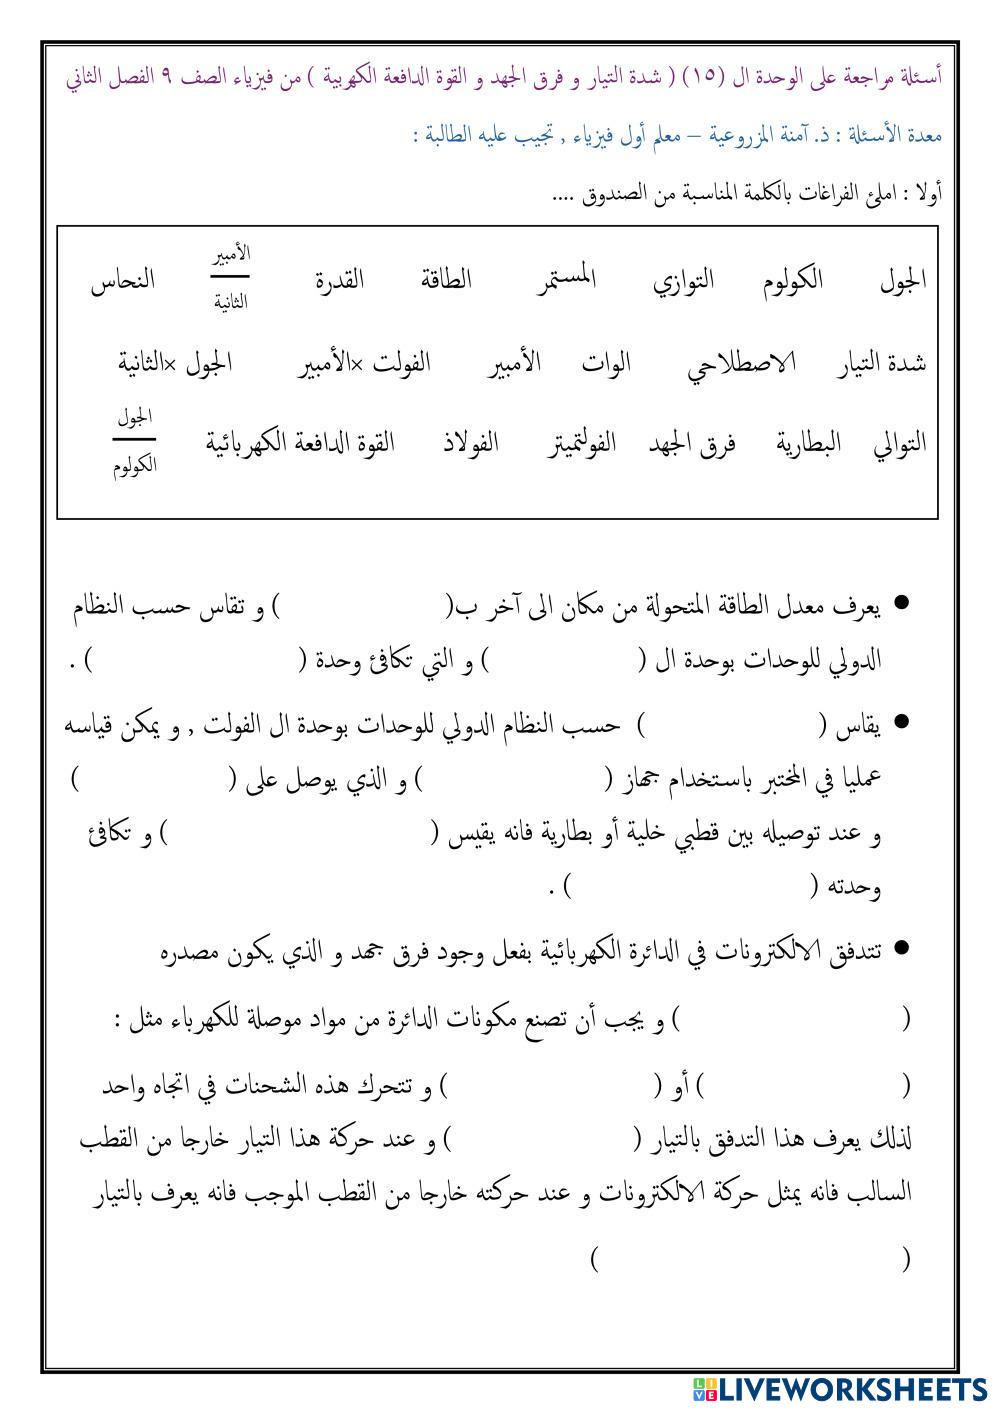 أسئلة مراجعة على الوحدة ال (١٥) ( شدة التيار و فرق الجهد و القوة الدافعة الكهربية ) من فيزياء الصف ٩ الفصل الثاني
معدة الأسئلة : ذ. آمنة المزروعية – معلم أول فيزياء , تجيب عليه الطالبة :
أولا : املئ الفراغات بالكلمة المناسبة من الصندوق ....
الجول الكولوم التوازي المستمر الطاقة القدرة الأمبير / الثانية النحاس
شدة التيار الاصطلاحي الوات الأمبير الفولت ×الأمبير الجول ×الثانية
التوالي البطارية فرق الجهد الفولتميتر الفولاذ القوة الدافعة الكهربائية الجول / الكولوم
● يعرف معدل الطاقة المتحولة من مكان الى آخر ب( ) و تقاس حسب النظام
الدولي للوحدات بوحدة ال ( ) و التي تكافئ وحدة ( ) .
● يقاس ( ) حسب النظام الدولي للوحدات بوحدة ال الفولت , و يمكن قياسه
عمليا في المختبر باستخدام جهاز ( ) و الذي يوصل على ( )
و عند توصيله بين قطبي خلية أو بطارية فانه يقيس ( ) و تكافئ
وحدته ( ) .
● تتدفق الالكترونات في الدائرة الكهربائية بفعل وجود فرق جهد و الذي يكون مصدره
( ) و يجب أن تصنع مكونات الدائرة من مواد موصلة للكهرباء مثل :
( ) أو ( ) و تتحرك هذه الشحنات في اتجاه واحد
لذلك يعرف هذا التدفق بالتيار ( ) و عند حركة هذا التيار خارجا من القطب
السالب فانه يمثل حركة الالكترونات و عند حركته خارجا من القطب الموجب فانه يعرف بالتيار
( )
LIVEWORKSHEETS